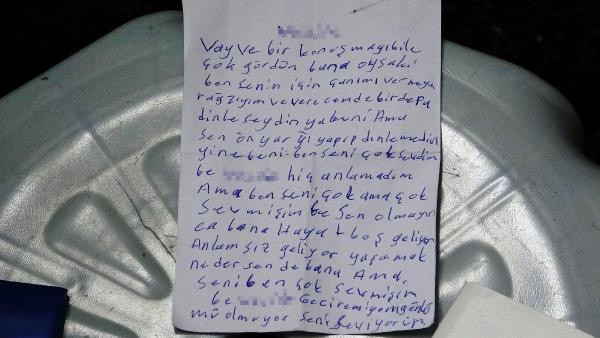 Vay ve bir konuşmayıbile
çok gördün bana oysaki
ben senin için canımı vermeye
razıyım ve verecende birdefa
dinleseydin ya beni Ama
sen ön yargı yapıp dinlemedin
yine beni ben seni çok sevdim
be hiç anlamadım
Ama ben seni çok ama çok
Sevmişim be sen olmayın
ca bana Hayat boş geliyor
Anlamsız geliyor yaşamak
neder sen de bana Ama
seni ben çok sevmişim
be Geciremiyom
mü olmuyor seni Seviyorum